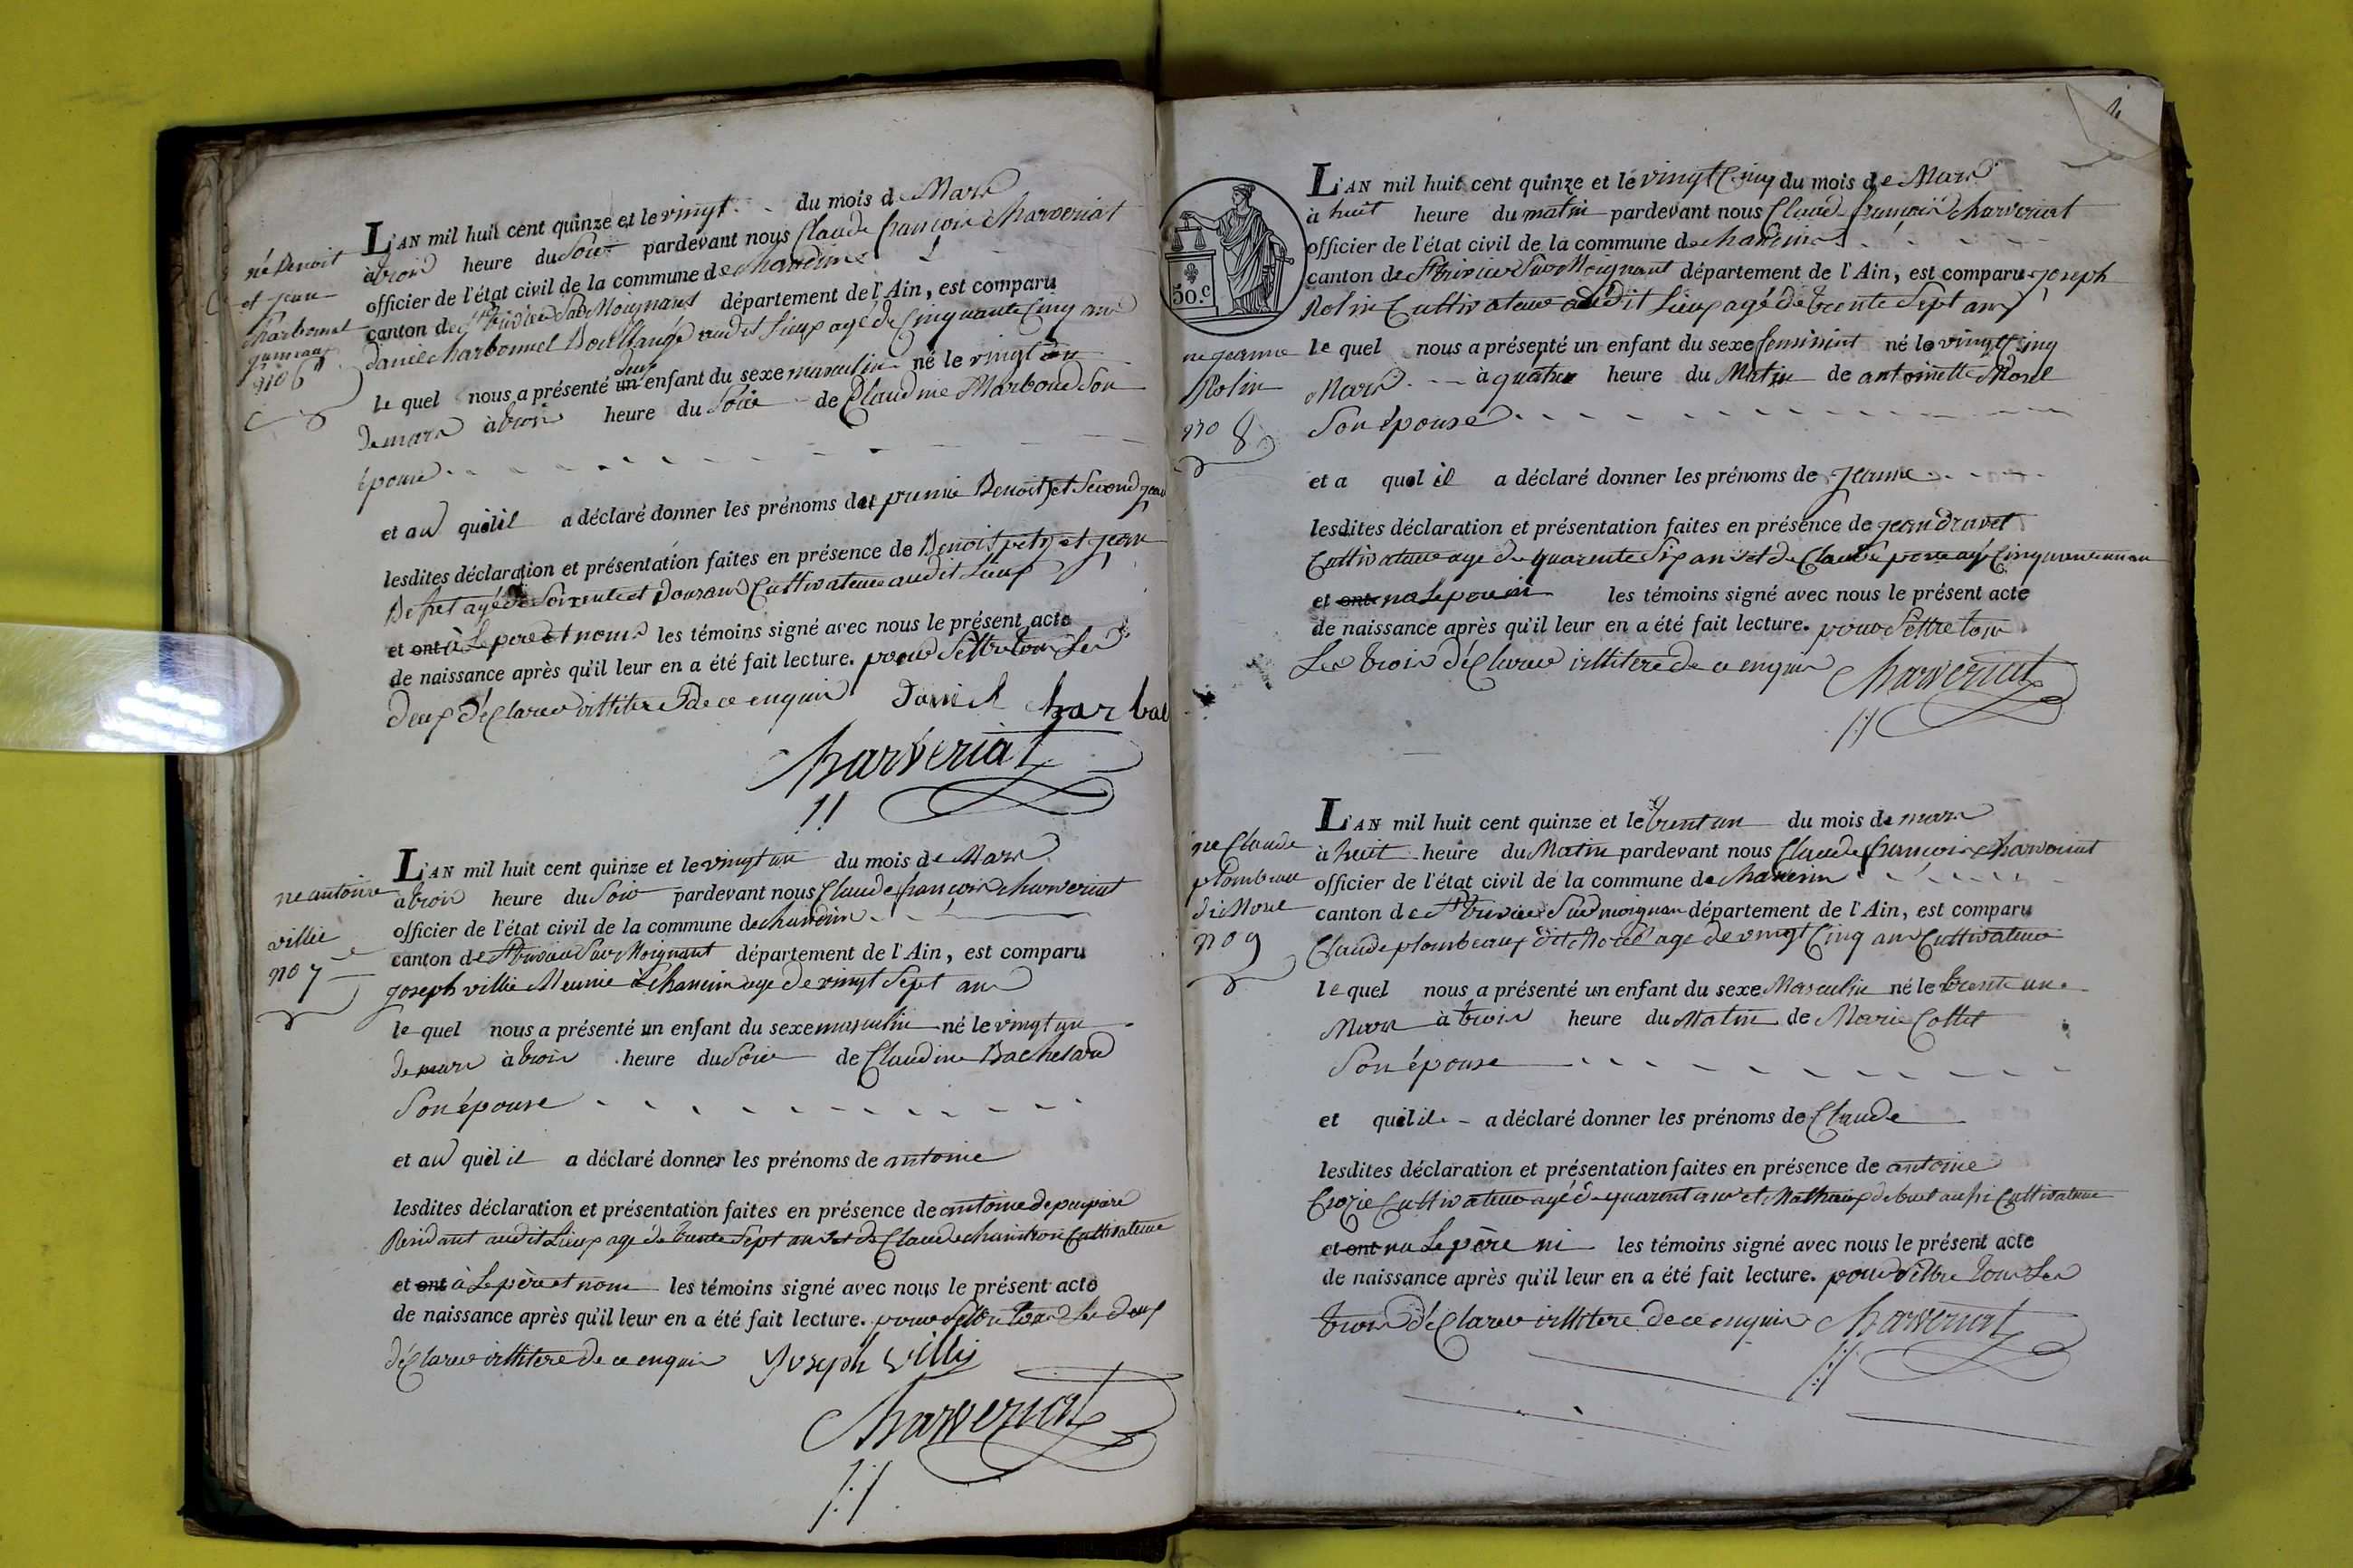 né Benoit
et jean
Charbonnel
jumeaux
no 6
L'AN mil huit cent quinze et le vingt du mois de Mars
à trois heure du Soir pardevant nous Claude françois Charveriat
officier de l'état civil de la commune de chaneins
canton de St trivier Sur Moignans département de l'Ain, est comparu
Daniel charbonnel Boullangé audit Lieux agé de Cinquante Cinq ans
deux
le quel nous a présenté un enfant du sexe masculin né le vingt du
de mars à trois heure du Soir de Claudine Marboud Son
épouse
et au quel il a déclaré donner les prénoms de premie Benoit et Second jean
lesdites déclaration et présentation faites en présence de Benoit et jean
agé de Soixente et Cultivateur audit Lieux
et ont à Le pere et nous les témoins signé avec nous le présent acte
de naissance après qu'il leur en a été fait lecture. pour Settre tous Les
deux déClarer illitere de ce enquis Daniel Charbal
Charveriat
ne antoine
villie
no 7
L'AN mil huit cent quinze et le vingt un du mois de Mars
à trois heure du Soir pardevant nous Claude françois charveriat
officier de l'état civil de la commune de chaneins
canton de St trivier Sur Moignant département de l'Ain, est comparu
joseph villie Meunie à Chaneins age de vingt Sept ans
le quel nous a présenté un enfant du sexe masculin né le vingt un
de mars à trois heure du Soir de Claudine Bachelard
Son épouse
et au quel il a déclaré donner les prénoms de antoine
lesdites déclaration et présentation faites en présence de antoine
audit Lieux agé de trente Sept ans et de Claude Cultivateur
et ont à Le père et nous les témoins signé avec nous le présent acte
de naissance après qu'il leur en a été fait lecture. pour Settre tous Les deux
déClarer illitere de ce enquis Joseph Villij
Charveriat
4
50.c
ne jeanne
Rolin
no 8
L'AN mil huit cent quinze et le vingt Cinq du mois de Mars
à huit heure du matin pardevant nous Claude françois charveriat
officier de l'état civil de la commune de chaneins
canton de St trivier Sur Moignant département de l'Ain, est comparu joseph
Rolin Cultivateur audit Lieux agé de trente Sept ans
le quel nous a présenté un enfant du sexe feminint né le vingt Cinq
Mars à quatre heure du Matin de antoinette Morel
Son épouse
et a quel il a déclaré donner les prénoms de Jeanne
lesdites déclaration et présentation faites en présence de jean dravet
Cultivateur age de quarente Six ans et de Claude agé Cinquante
et ont na Le pere ni les témoins signé avec nous le présent acte
de naissance après qu'il leur en a été fait lecture. pour Settre tous
Les trois déClarer illitere de ce enquis Charveriat
ne Claude
plombeaux
di Morel
no 9
L'AN mil huit cent quinze et le trent un du mois de mars
à huit heure du Matin pardevant nous Claude françois charveriat
officier de l'état civil de la commune de chaneins
canton de St trivier Sur moignan département de l'Ain, est comparu
Claude plombeaux dit Morel age de vingt Cinq ans Cultivateur
le quel nous a présenté un enfant du sexe Masculin né le trente un
Mars à trois heure du Matin de Marie Collet
Son épouse
et quel il a déclaré donner les prénoms de Claude
lesdites déclaration et présentation faites en présence de antoine
Crozie Cultivateur agé de quarent ans et Mathieux aussi Cultivateur
et ont na Le père ni les témoins signé avec nous le présent acte
de naissance après qu'il leur en a été fait lecture. pour Settre tous Les
trois déClarer illitere de ce enquis Charveriat